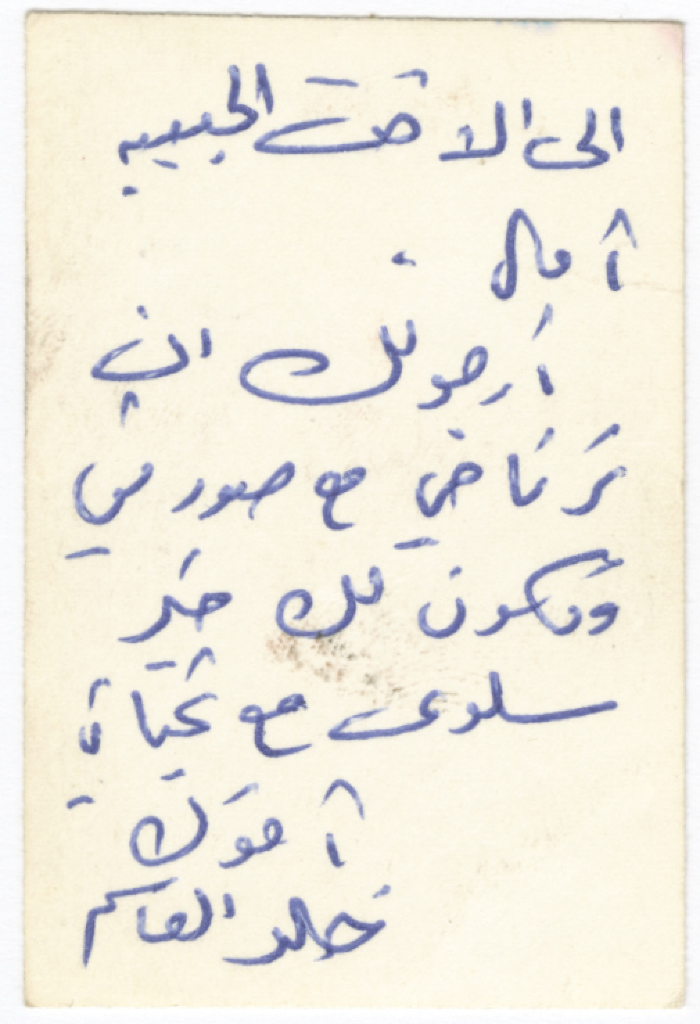 الى الاخت الحبيبه
آمال .
أرجو لك ان
ترتاحي مع صورتي
وتكون لك خير
سلوى مع تحياتي
أخوك
خالد القاسم